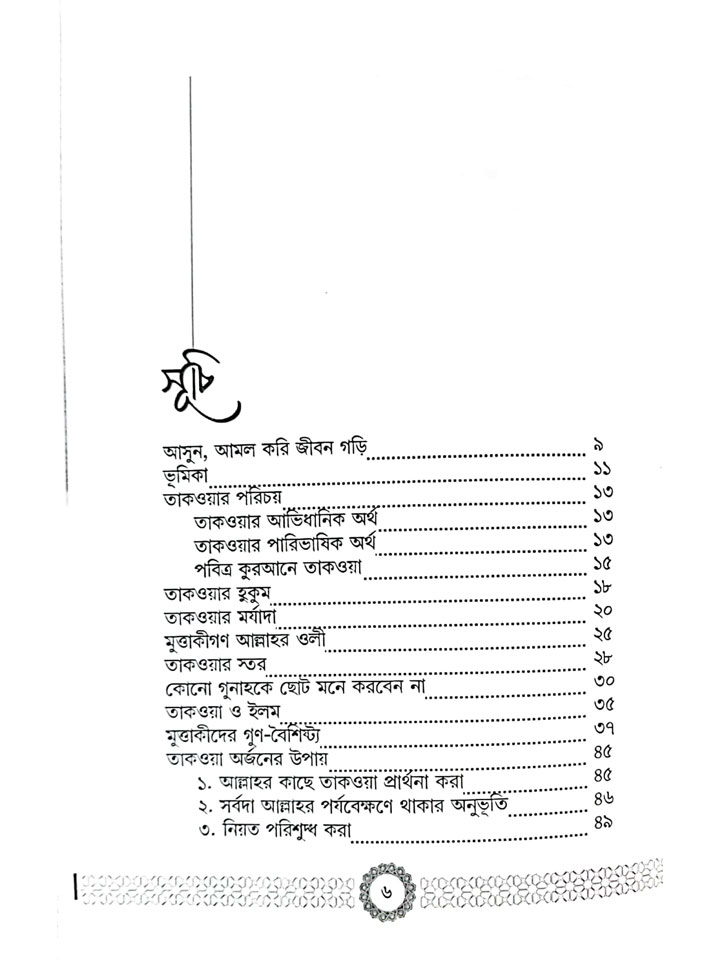 সূচি
আসুন, আমল করি জীবন গড়ি ৯
ভূমিকা ১১
তাকওয়ার পরিচয় ১৩
তাকওয়ার আভিধানিক অর্থ ১৩
তাকওয়ার পারিভাষিক অর্থ ১৩
পবিত্র কুরআনে তাকওয়া ১৫
তাকওয়ার হুকুম ১৮
তাকওয়ার মর্যাদা ২০
মুত্তাকীগণ আল্লাহর ওলী ২৫
তাকওয়ার স্তর ২৮
কোনো গুনাহকে ছোট মনে করবেন না ৩০
তাকওয়া ও ইলম ৩৫
মুত্তাকীদের গুণ-বৈশিষ্ট্য ৩৭
তাকওয়া অর্জনের উপায় ৪৫
১. আল্লাহর কাছে তাকওয়া প্রার্থনা করা ৪৫
২. সর্বদা আল্লাহর পর্যবেক্ষণে থাকার অনুভূতি ৪৬
৩. নিয়ত পরিশুদ্ধ করা ৪৯
৬